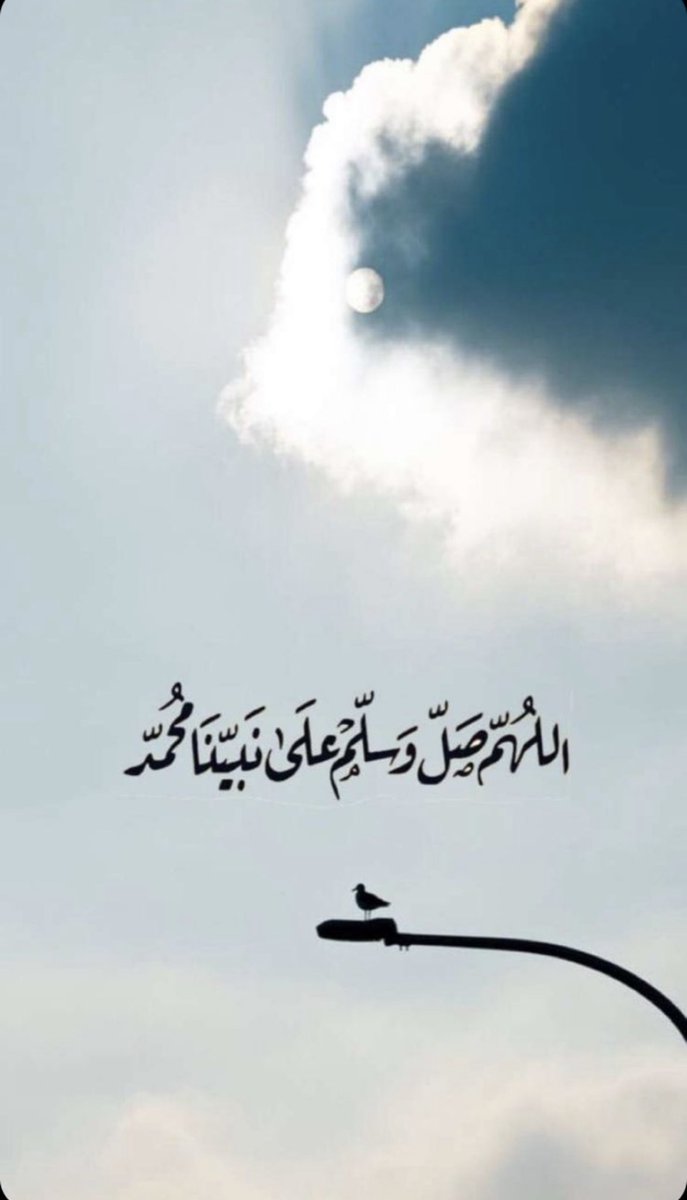 اللهُمّ صَلّ وَسلّمْ علَىٰ نَبيّنَا مُحمّد